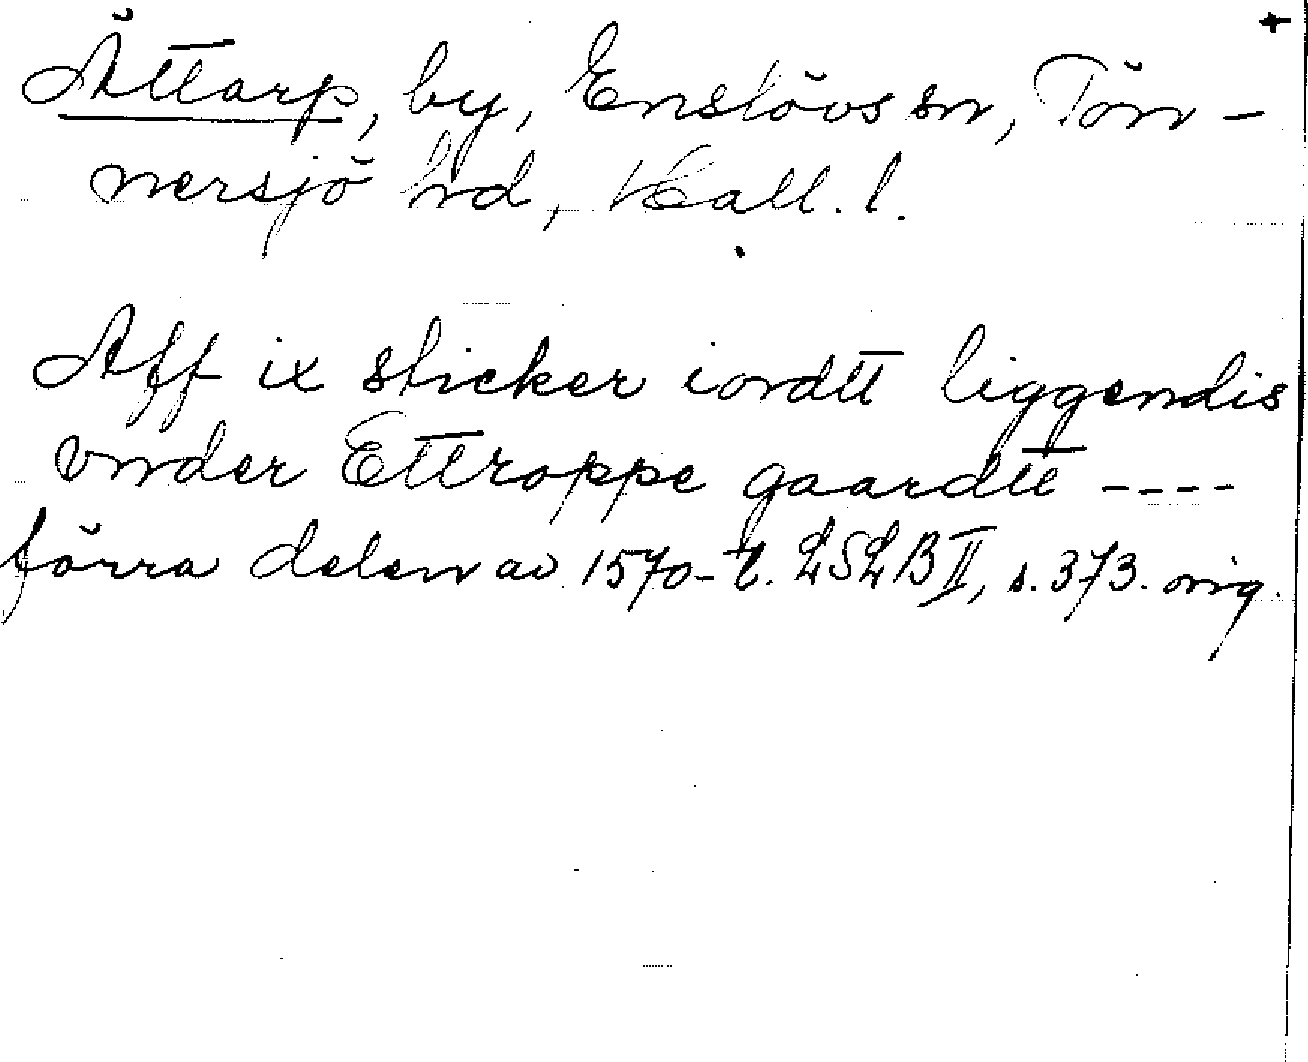 +
Ättarp, by, Enslövs sn, Tön-
nersjö hd, Hall. l.
Aff ix sticker iordtt liggendis
vnder Ettroppe gaardtt ----
förra delen av 1570-t. LSLB II, s. 373. orig.